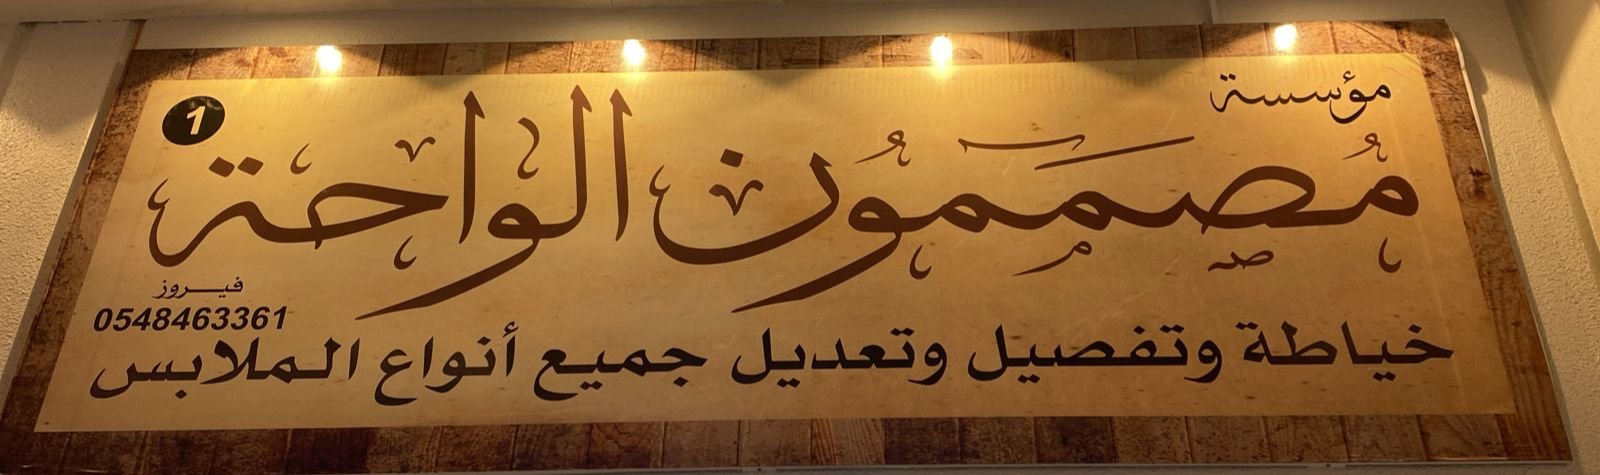 مؤسسة
مُصَممُون الواحة
1
فيروز
0548463361
خياطة وتفصيل وتعديل جميع أنواع الملابس